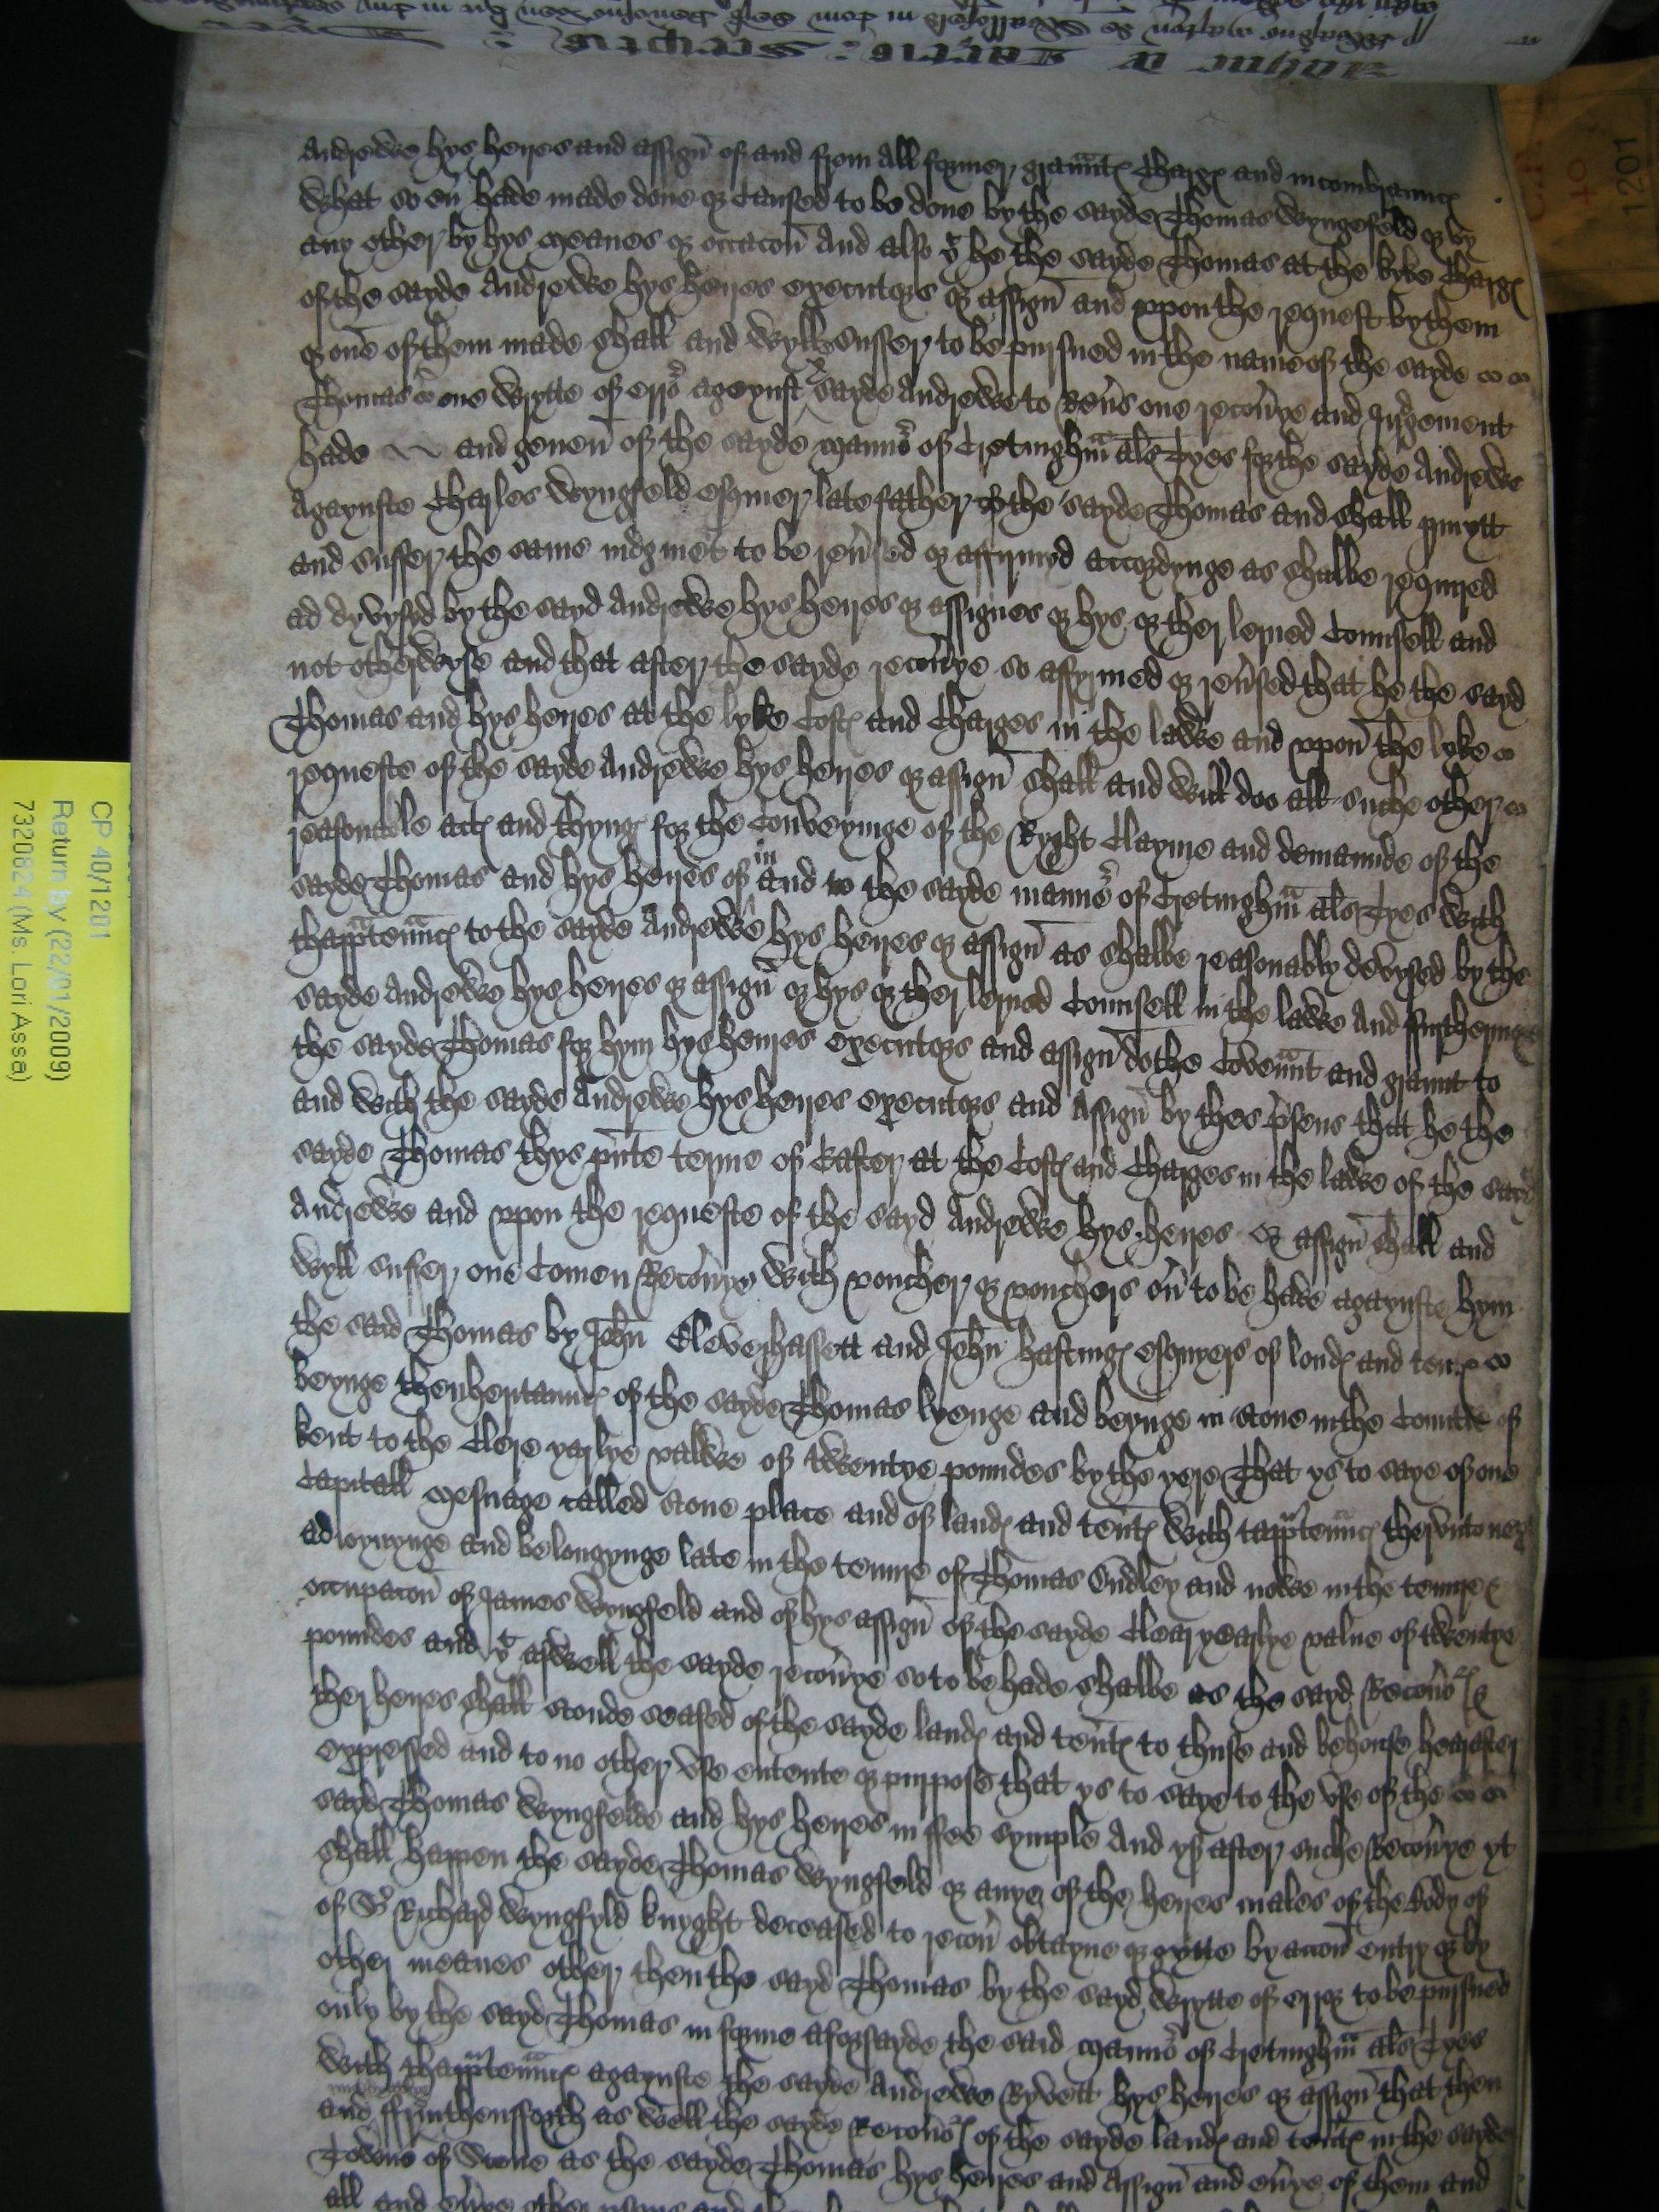 Andrewe hys heyres and assign of and from all former grauntes charges and incombraunces
what so eu hade made done or caused to be done by the sayde Thomas Wyngefeld or by
any other by hys meanes or occacon And also yt he the sayde Thomas at the lyke charges
of the sayde Andrewe hys heyres executors or assign and vppon the request by them
or one of them made shall and wyll suffer to be pursued in the name of the sayde
Thomas one wrytte of erro agaynst ye sayde Andrewe to reu's one recou'ye and Judgement
hade and geuen of the sayde manno of Cretinghm als Tyes for the sayde Andrewe
Agaynste Charles Wyngfeld esquier late father of the sayde Thomas and shall pmytt
and suffer the same judgmet to be reu'sed or affyrmyd accordynge as shalbe requyred
ad dyvysyd by the sayd Andrewe hys heyres or assignes or hys or ther lerned Counsell and
not otherwyse and that after the sayde recou'ye so affyrmed or reu'sed that he the sayd
Thomas and hys heyres at the lyke Costes and Charges in the lawe and vpon the lyke
requeste of the sayde Andrewe hys heyres or assign shall and will doo all suche other
reasonable actes and thynges for the Conveyinge of the Ryght Clayme and demaunde of the
sayde Thomas and hys heyres of in and to the sayde manno of Cretinghm als Tyes with
thapptennces to the sayde Andrewe hys heyres or assign as shalbe reasonably devysed by the
sayde Andrewe hys heyres or assign or hys or ther lerned Counsell in the lawe And furthermore
the sayde Thomas for hym hys heyres executors and assign dothe Covennt and graunt to
and with the sayde Andrewe hys heyres executors and Assign by thes psens that he the
sayde Thomas thys pnte terme of Easter at the Costes and Charges in the lawe of the sayd
Andrewe and vppon the requeste of the sayd Andrewe hys heyres or assign shall and
wyll suffer one Comen Recou'ye with voucher or vouchers ou' to be hade agaynste hym
the said Thomas by John Cleverhassett and John hastinges esquyers of londes and ten
beynge thenheritaunces of the sayde Thomas lyenge and beynge in Stone in the Countie of
kent to the Clere yarlye valwe of twentye poundes by the yere That ys to saye of one
Capitall mesuage called Stone place and of landes and tentes with tapptennces thervnto
adioynynge and belongynge late in the tenure of Thomas Sudley and nowe in the tenure &
occupacon of James Wyngfeld and of hys assign of the sayde Clear yearlye value of twentye
poundes and yt aswell the sayde recou'ye so to be hade shalbe as the sayd Recou'ores &
ther heyres shall stonde seased of the sayde landes and tentes to thuse and behouse hearafter
expressed and to no other vse entente or purpose that ys to saye to the vse of the
sayd Thomas Wyngfelde and hys heyres in ffee symple And yf after suche Recou'ye yt
shall happen the sayde Thomas Wyngfeld or anye of the heyres males of the body of
of Sr Richard Wyngfyld knyght deceased to recou' obtayne or gytte by accon entry or by
other meanes other then the sayd Thomas by the sayd wrytte of error to be pursued
only by the sayd Thomas in forme aforsayde the said manno of Cretinghm als Tyes
with thapptennces agaynste the sayde Andrewe Ryvett hys heyres or assign that then
and ffrmthensforth as well the sayde Recou'ores of the sayde landes and tentes in the sayde
Towne of Stone as the sayde Thomas hys heyres and Assign and eu'ye of them and
all and eu'ye other
C.P.
40
1201
CP 40/1201
Return by (22/01/2009)
7320624 (Ms. Lori Assa)